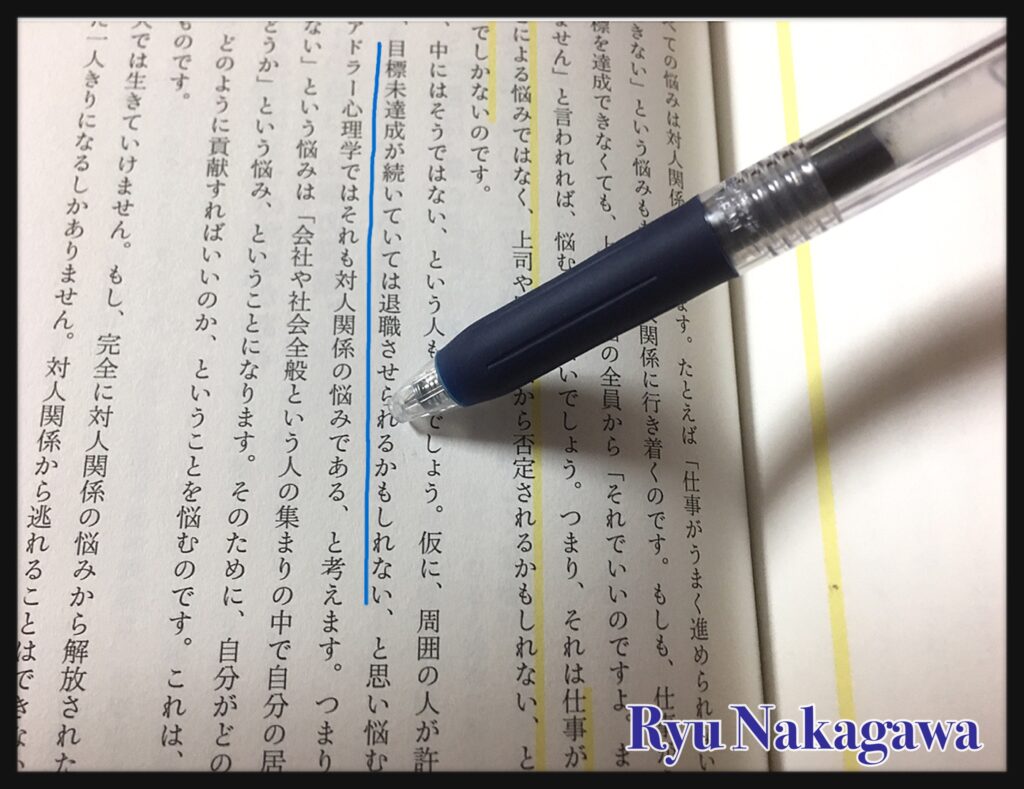 ての悩みは対人関係 ます。たとえば「仕事がうまく進められ い
きない」という悩みも 関係に行き着くのです。もしも、仕事
標を達成できなくても、上 の全員から「それでいいのですよ。ま
ません」と言われれば、悩む いでしょう。つまり、それは仕事が
による悩みではなく、上司や から否定されるかもしれない、と
でしかないのです。
中にはそうではない、という人も でしょう。仮に、周囲の人が許
目標未達成が続いていては退職させられるかもしれない、と思い悩む
アドラー心理学ではそれも対人関係の悩みである、と考えます。つまり
ない」という悩みは「会社や社会全般という人の集まりの中で自分の居
どうか」という悩み、ということになります。そのために、自分がどの
どのように貢献すればいいのか、ということを悩むのです。これは、
ものです。
では生きていけません。もし、完全に対人関係の悩みから解放された
一人きりになるしかありません。対人関係から逃れることはできない
Ryu Nakagawa